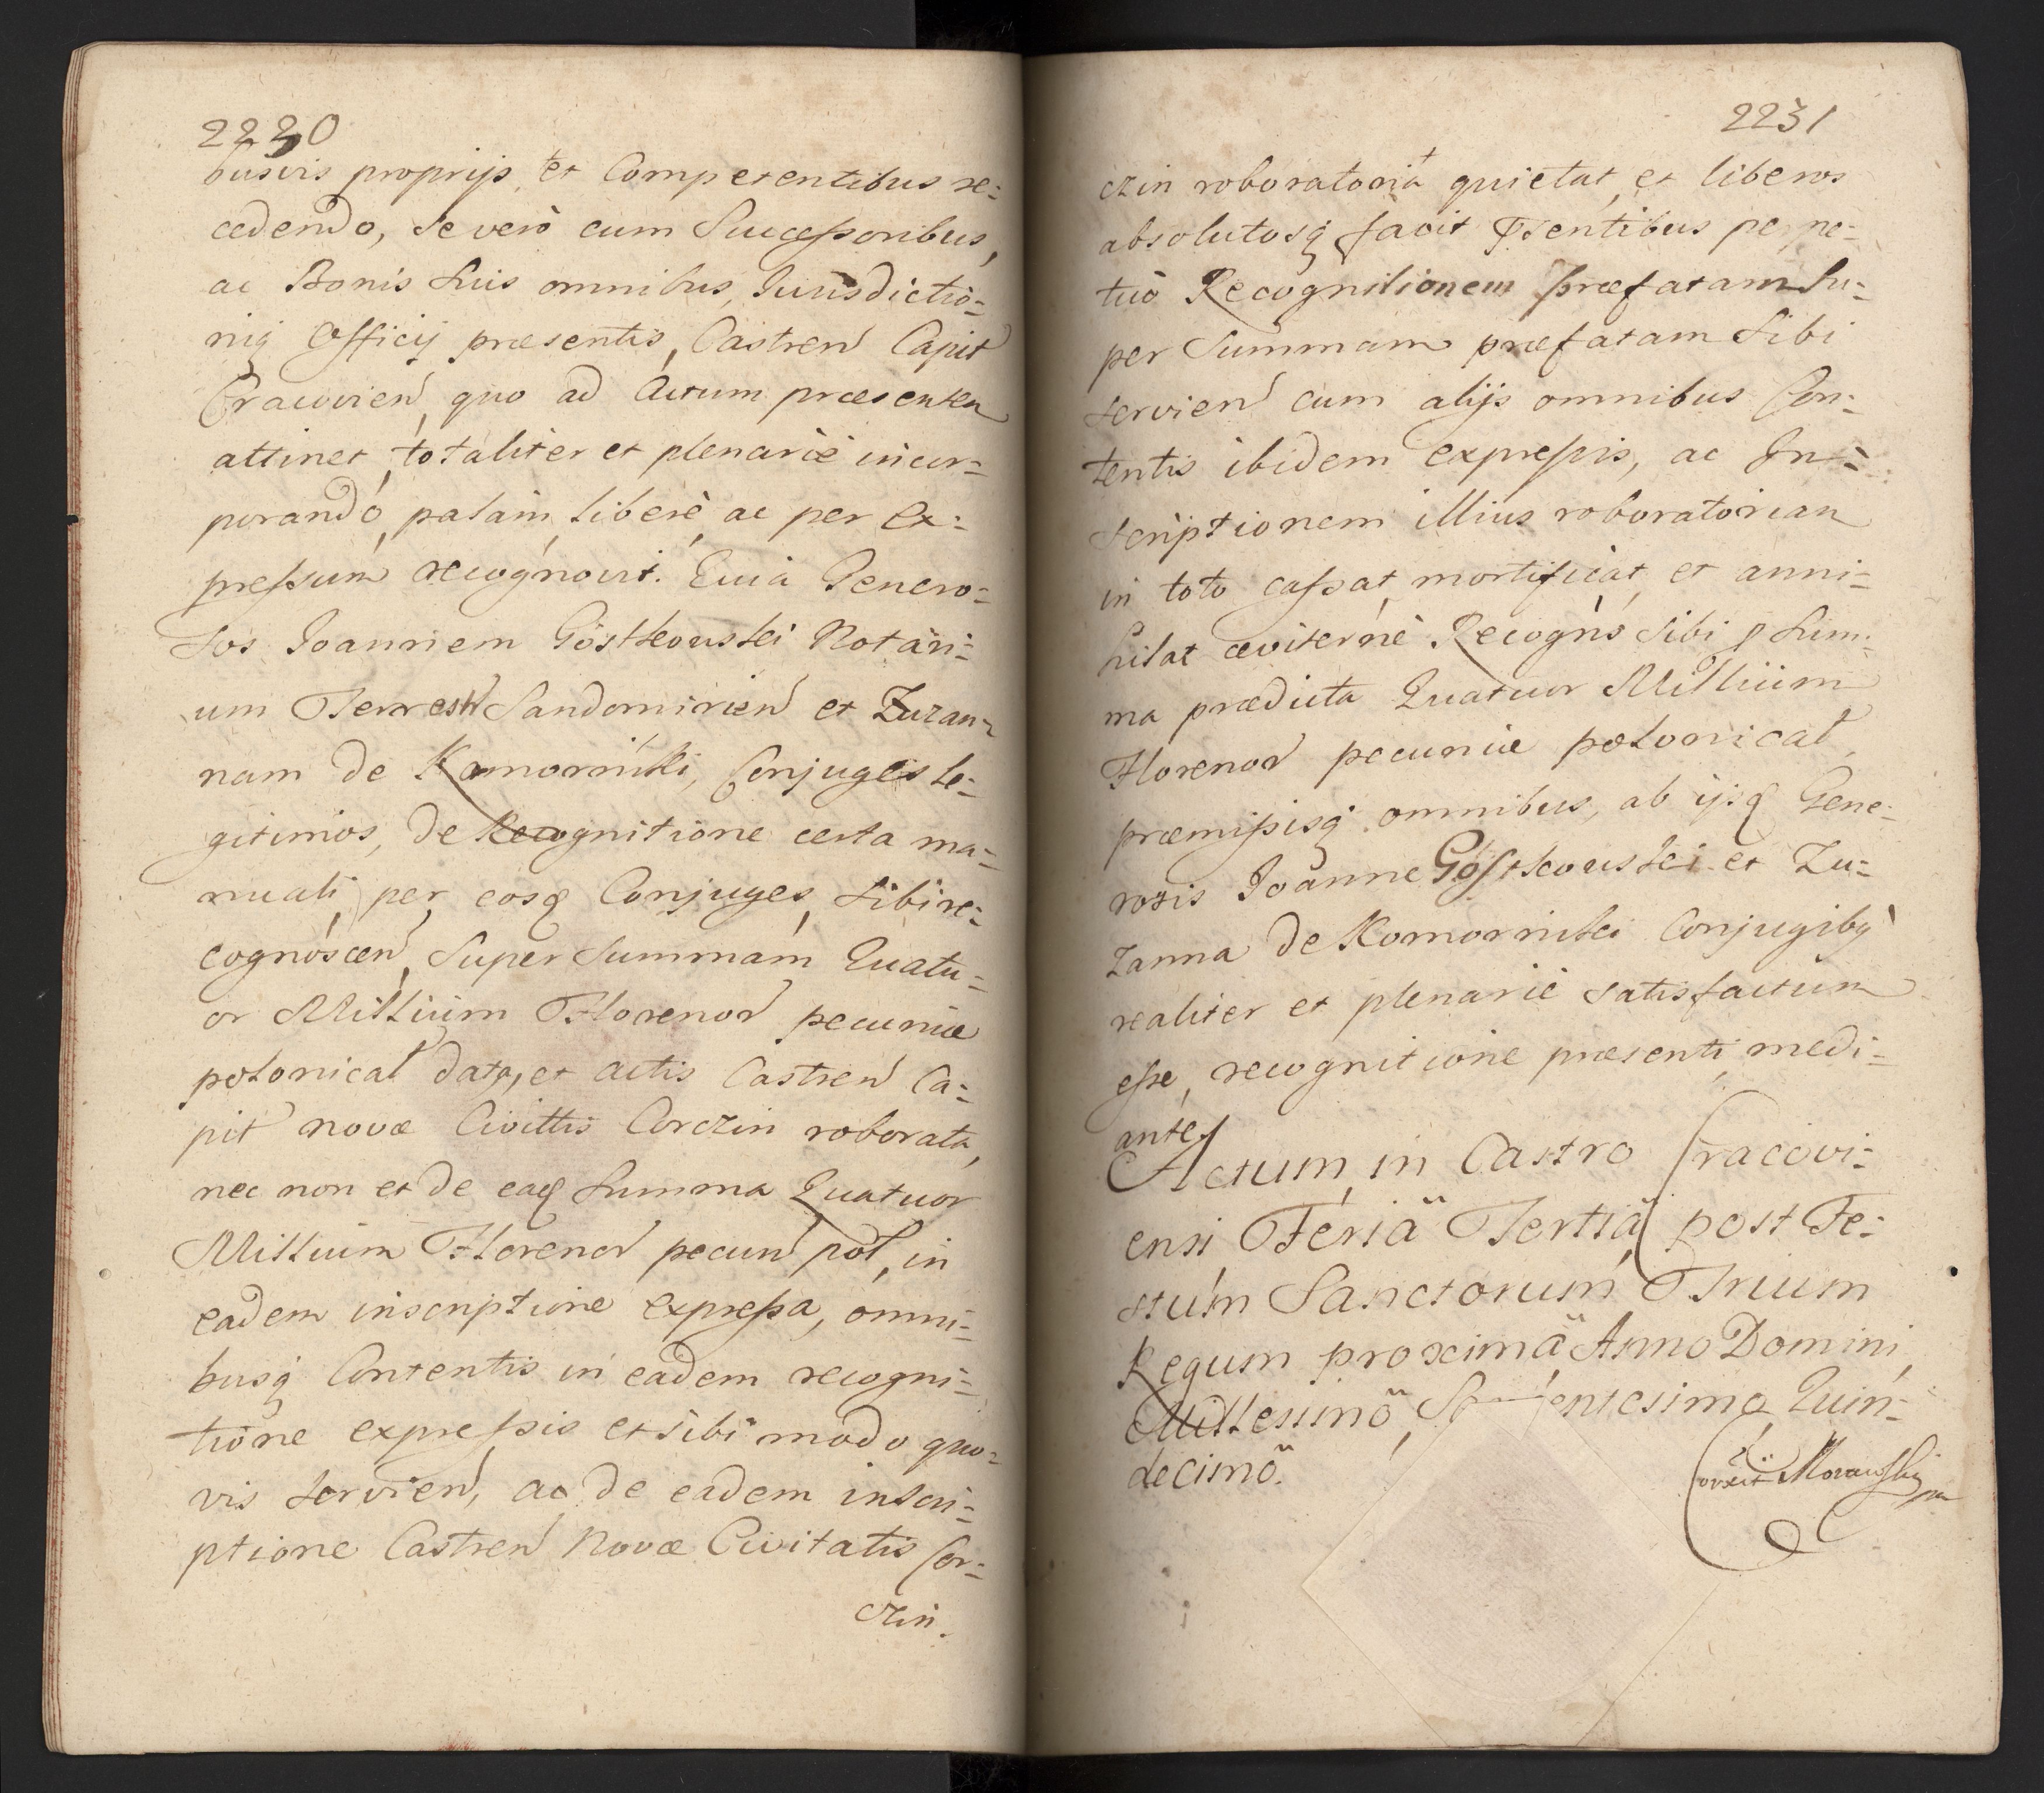 2230
busvis proprijs, et Competentibus re:
cedendo, se verò cum Successoribus,
ac Bonis Suis omnibus, Jurisdictio:
niq Officij præsentis, Castren Capit
Cracovien, quo ad Actum præsentem
attinet, totaliter et plenariè incor:
porando, palàm, liberè, ac per Ex:
pressum recognovit. Quià Genero:
sos Joannem Gostkouski Notari:
um Terrestr Sandomirien et Zuzan:
nam de Komorniki, Conjuges le:
gitimos, de Recognitione certa ma:
nuali, per eosq Conjuges, Sibi re:
cognoscen, Super Summam Quatu:
or Millium Florenor pecuniæ
polonical data, et actis Castren Ca:
pit novæ Civittis Corczin roborata,
nec non et de eaq Summa Quatuor
Millium Florenor pecun pol, in
eadem inscriptione expressa, omni:
busq Contentis in eadem recogni:
tione expressis et sibi modo quo:
vis Servien, ac de eadem inscri:
ptione Castren Novæ Civitatis Cor:
czin.
2231
czin roboratoria quietat, et liberos
absolutosq facit Psentibus perpe:
tuò Recognitionem præfatam Su:
per Summam præfatam Sibi
servien cum alijs omnibus Con:
tentis ibidem expressis, ac In:
scriptionem illius roboratoriam
in toto cassat, mortificat, et anni:
hilat æviternè. Recogns Sibi p Sum:
ma prædicta Quatuor Millium
Florenor pecuniæ polonical,
præmissisq omnibus, ab ijsq Gene:
rosis Joanne Gostkouski et Zu:
zanna de Komorniki Conjugibq
realiter et plenariè satisfactum
esse, recognitione præsenti, medi:
ante.
Actum in Castro Cracovi:
ensi Feriâ Tertiâ post Fe:
stum Sanctorum Trium
Regum proximâ Anno Domini,
Millesimo, Septengentesimo Quin:
decimo.
Corexit Morawski